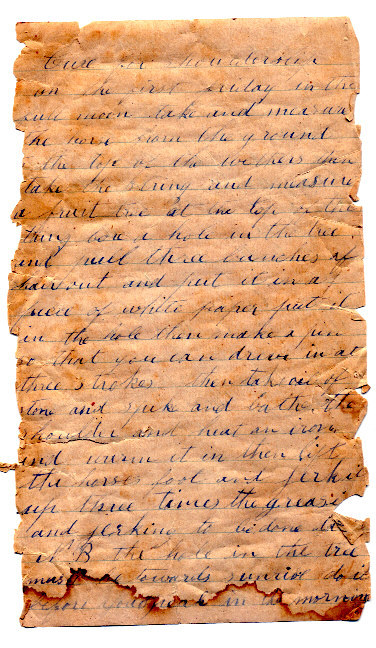 Cure
on the first friday in the
moon take and measure
the horse from the ground
the top of the withers then
take the string and measure
a fruit tree at the top of the
string bore a hole in the tree
and pull three bunches of
hair out and put it in a
piece of white paper put it
in the hole then make a pin
so that you can drive in at
three strokes then take oil of
stone and and bathe the
shoulder and heat an iron
and warm it in then lift
the horses foot and jerk it
up three times the greasing
and jerking to be done
NB the hole in the tree
must be towards sunrise do it
before in the morning